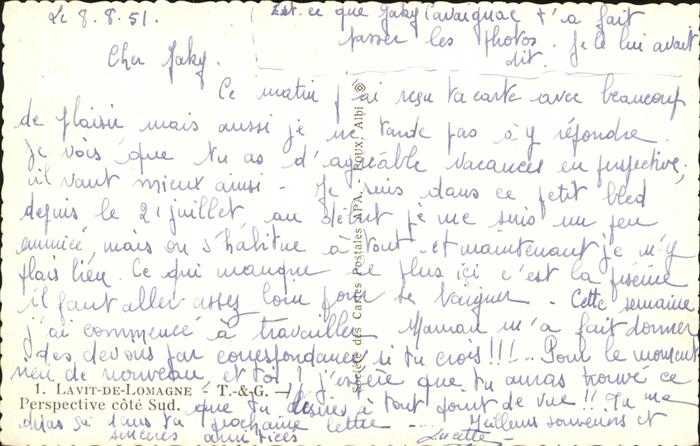 Le 8.8.51.
Est-ce que Jaky Cavaignac t'a fait
passer les photos. Je le lui avait
dit.
Cher Jaky.
Ce matin j'ai reçu ta carte avec beaucoup
de plaisir mais aussi je ne tarde pas à y répondre
Je vois que tu as d'agréable vacances en perspective,
il vaut mieux ainsi - Je suis dans ce petit bled
depuis le 21 juillet, au début je me suis un peu
ennuiée, mais on s'habitue à tout et maintenant je m'y
plais bien. Ce qui manque le plus ici c'est la piscine
il faut aller assez loin pour se baigner - Cette semaine
j'ai commencé à travailler Maman m'a fait donner
des devoirs par correspondance si tu crois!!!... Pour le moment
rien de nouveau et toi? j'espère que tu auras trouvé ce
que tu désires à tout point de vue!! Tu me
diras ça dans ta prochaine lettre .... Meilleurs souvenirs et
sincères amitiés
Lucette
1. LAVIT-DE-LOMAGNE - T.-&-G. -
Perspective côté Sud.
Société des Cartes Postales APA. - POUX, Albi